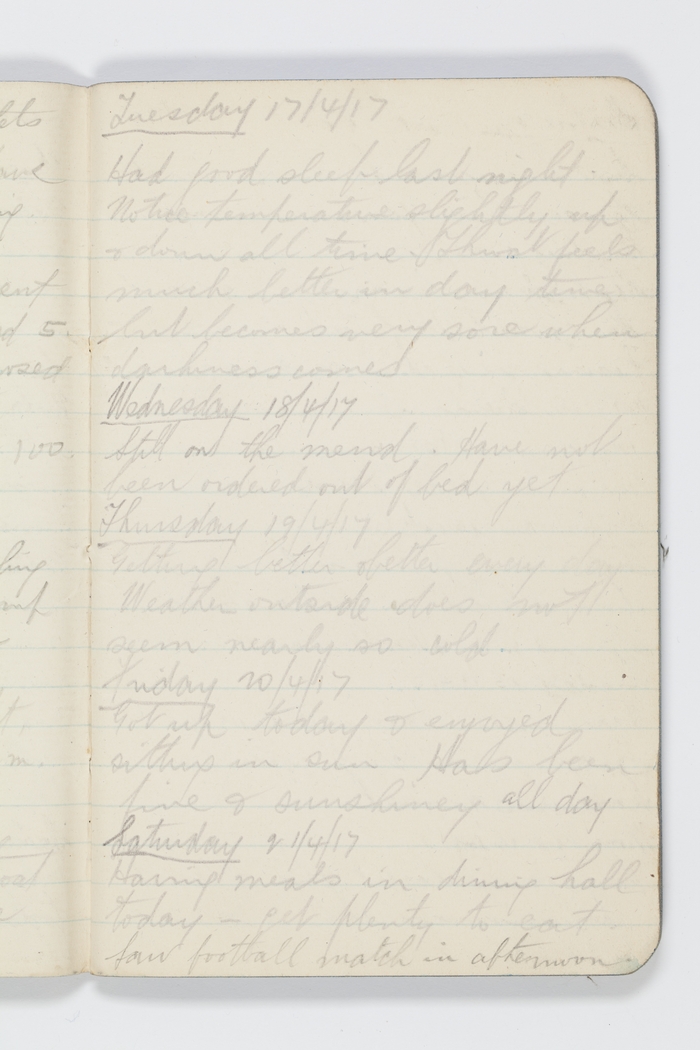 ets
ave
g.
ent
ed 5.
osed
100.
ling
t,
m.
e
Tuesday 17/4/17
Had good sleep last night.
Notice temperature slightly up
& down all time. Throat feels
much better in day time
but becomes very sore when
darkness comes
Wednesday 18/4/17
Still on the mend. Have not
been ordered out of bed yet
Thursday 19/4/17
Getting better & better every day
Weather outside does not
seem nearly so cold.
Friday 20/4/17
Got up today & enjoyed
sitting in sun. Has been
fine & sunshiney all day
Saturday 21/4/17
Having meals in dining hall
today - get plenty to eat
Saw football match in afternoon.